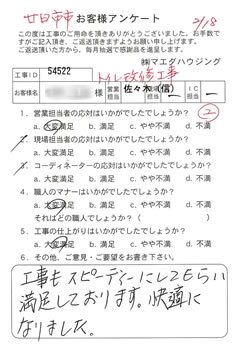 廿日市 お客様アンケート 2/18
この度は工事のご用命を頂きありがとうございました。お手数で
すがご記入頂き、ご返送頂きますようお願い申し上げます。
ご返送頂いた方から、毎月抽選で感謝品を進呈します。
㈱マエダハウジング
工事ID 54522 トイレ改修工事
お客様名 様 営業担当 佐々木(信) IC担当 ー
1. 営業担当者の応対はいかがでしたでしょうか? ②
a. 大変満足 b. 満足 c. やや不満 d. 不満
2. 現場担当者の応対はいかがでしたでしょうか?
a. 大変満足 b. 満足 c. やや不満 d. 不満
3. コーディネーターの応対はいかがでしたでしょうか?
a. 大変満足 b. 満足 c. やや不満 d. 不満
4. 職人のマナーはいかがでしたでしょうか?
a. 大変満足 b. 満足 c. やや不満 d. 不満
それはどの職人でしょうか? ( )
5. 工事の仕上がりはいかがでしたでしょうか?
a. 大変満足 b. 満足 c. やや不満 d. 不満
6. その他、ご意見・ご要望をお書き下さい。
工事もスピーディーにしてもらい
満足しております。快適に
なりました。